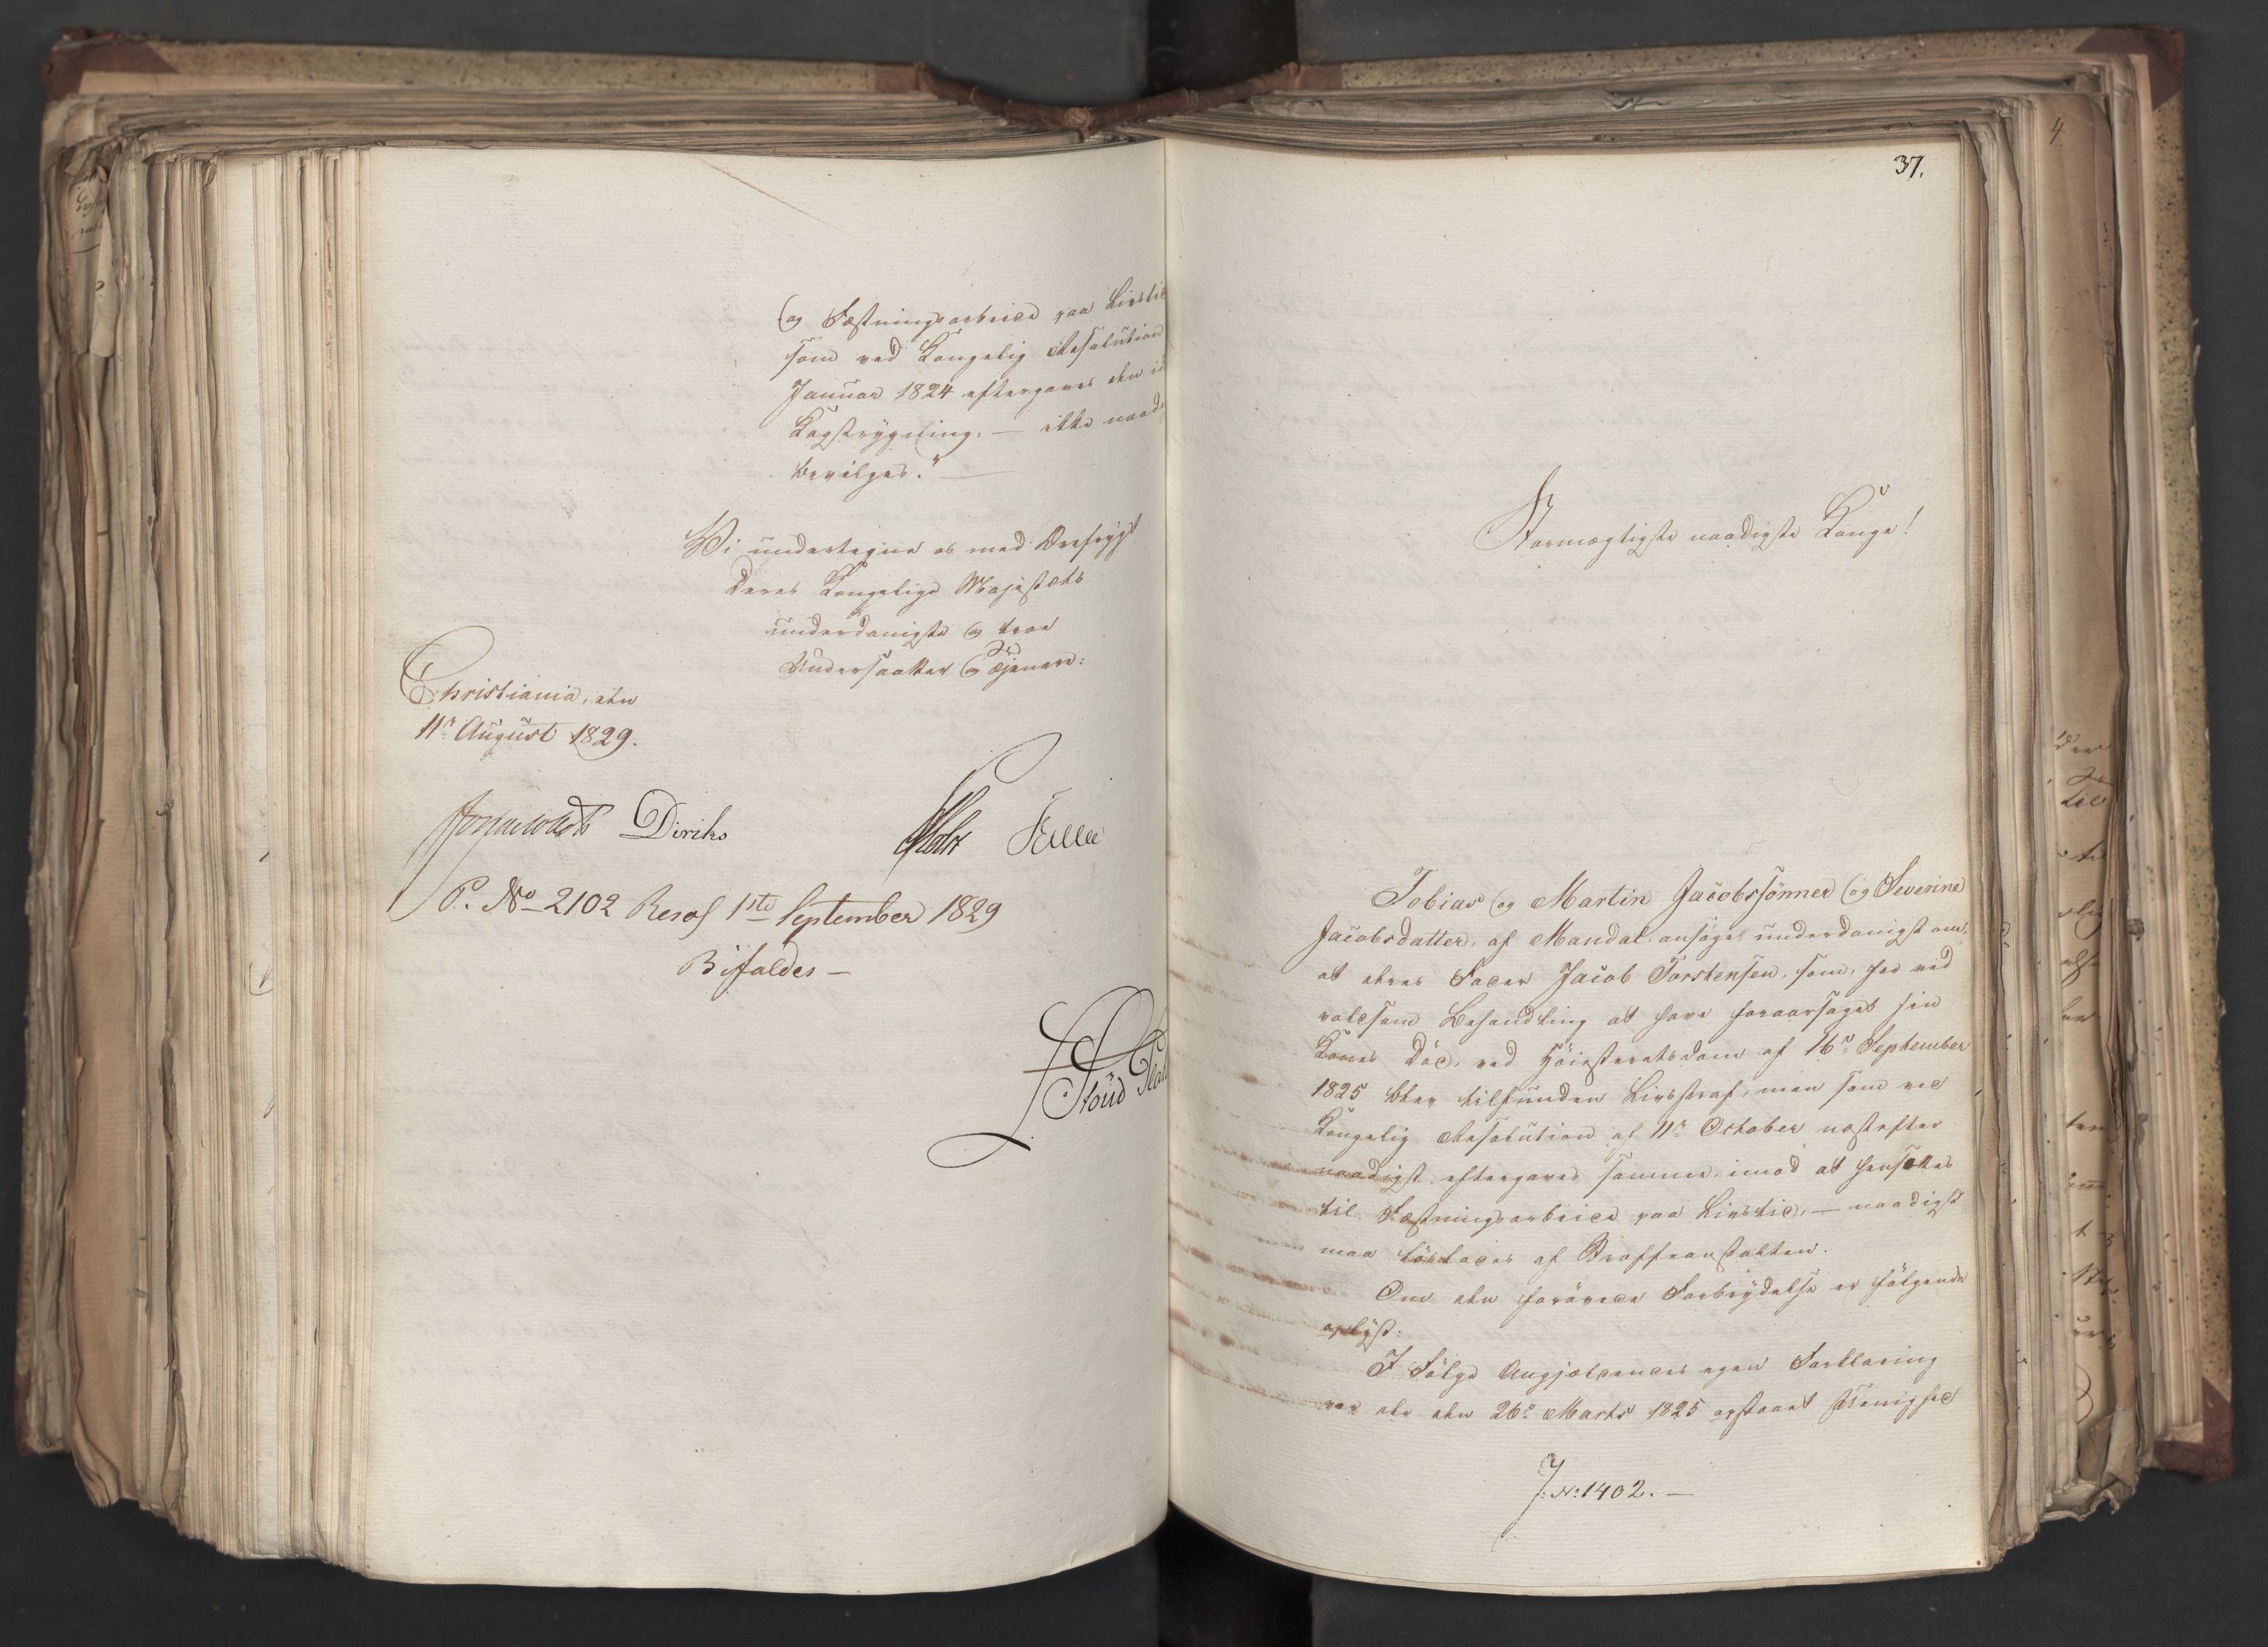 og Fæstningsarbeide paa Livstid
som ved Kongelig Resolution
Januar 1824 eftergaves den id
Kagstrygning, — ikke naad
bevilges." —
Vi undertegne os med Ærefrygt
Deres Kongelige Majestæts
underdanigste og troe
Undersaatter og Tjenere:
Christiania, den
11te August 1829.
Diriks Holst
P. No 2102 Resol 1ste September 1829
Bifaldes —
37.
Stormægtigste naadigste Konge!
Tobias og Martin Jacobssønner og Severine
Jacobsdatter, af Mandal ansøge underdanigst om,
at deres Fader Jacob Torstensen, som, for ved
voldsom Behandling at have foraarsaget sin
Kones Død, ved Høiesteretsdom af 16de September
1825 blev tilfunden Livsstraf, men som ved
Kongelig Resolution af 11te October næstefter
naadigst eftergaves samme, imod at hensættes
til Fæstningsarbeide paa Livstid, — naadigst
maa løslades af Straffeanstalten.
Om den forøvede Forbrydelse er følgende
oplyst:
I Følge Angjældendes egen Forklaring
var der den 26de Marts 1825 opstaaet Uenighed
J: No 1402. —
4